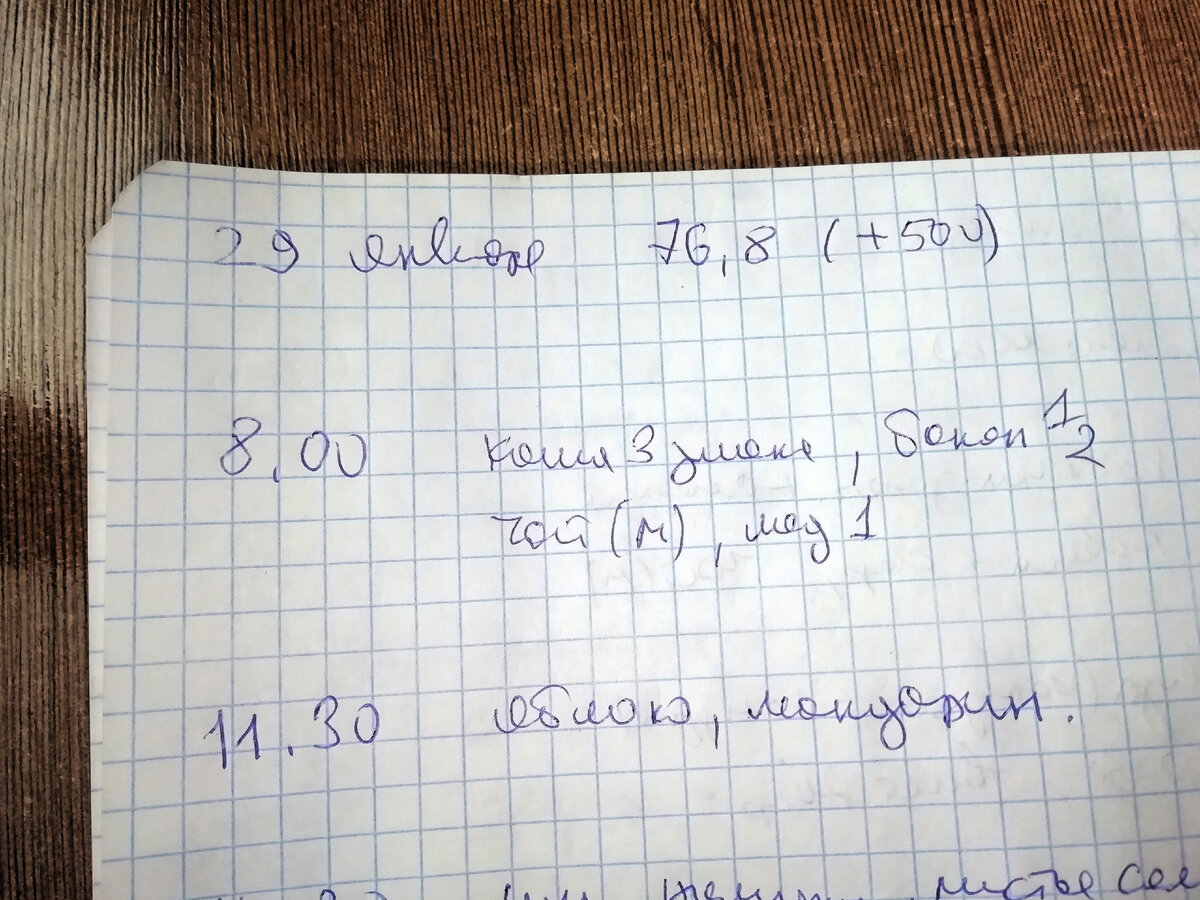 29 января 76,8 (+500)
8.00 каша 3 злака, банан 1/2
чай (м), мёд 1
11.30 яблоко, мандарин.
листья сал